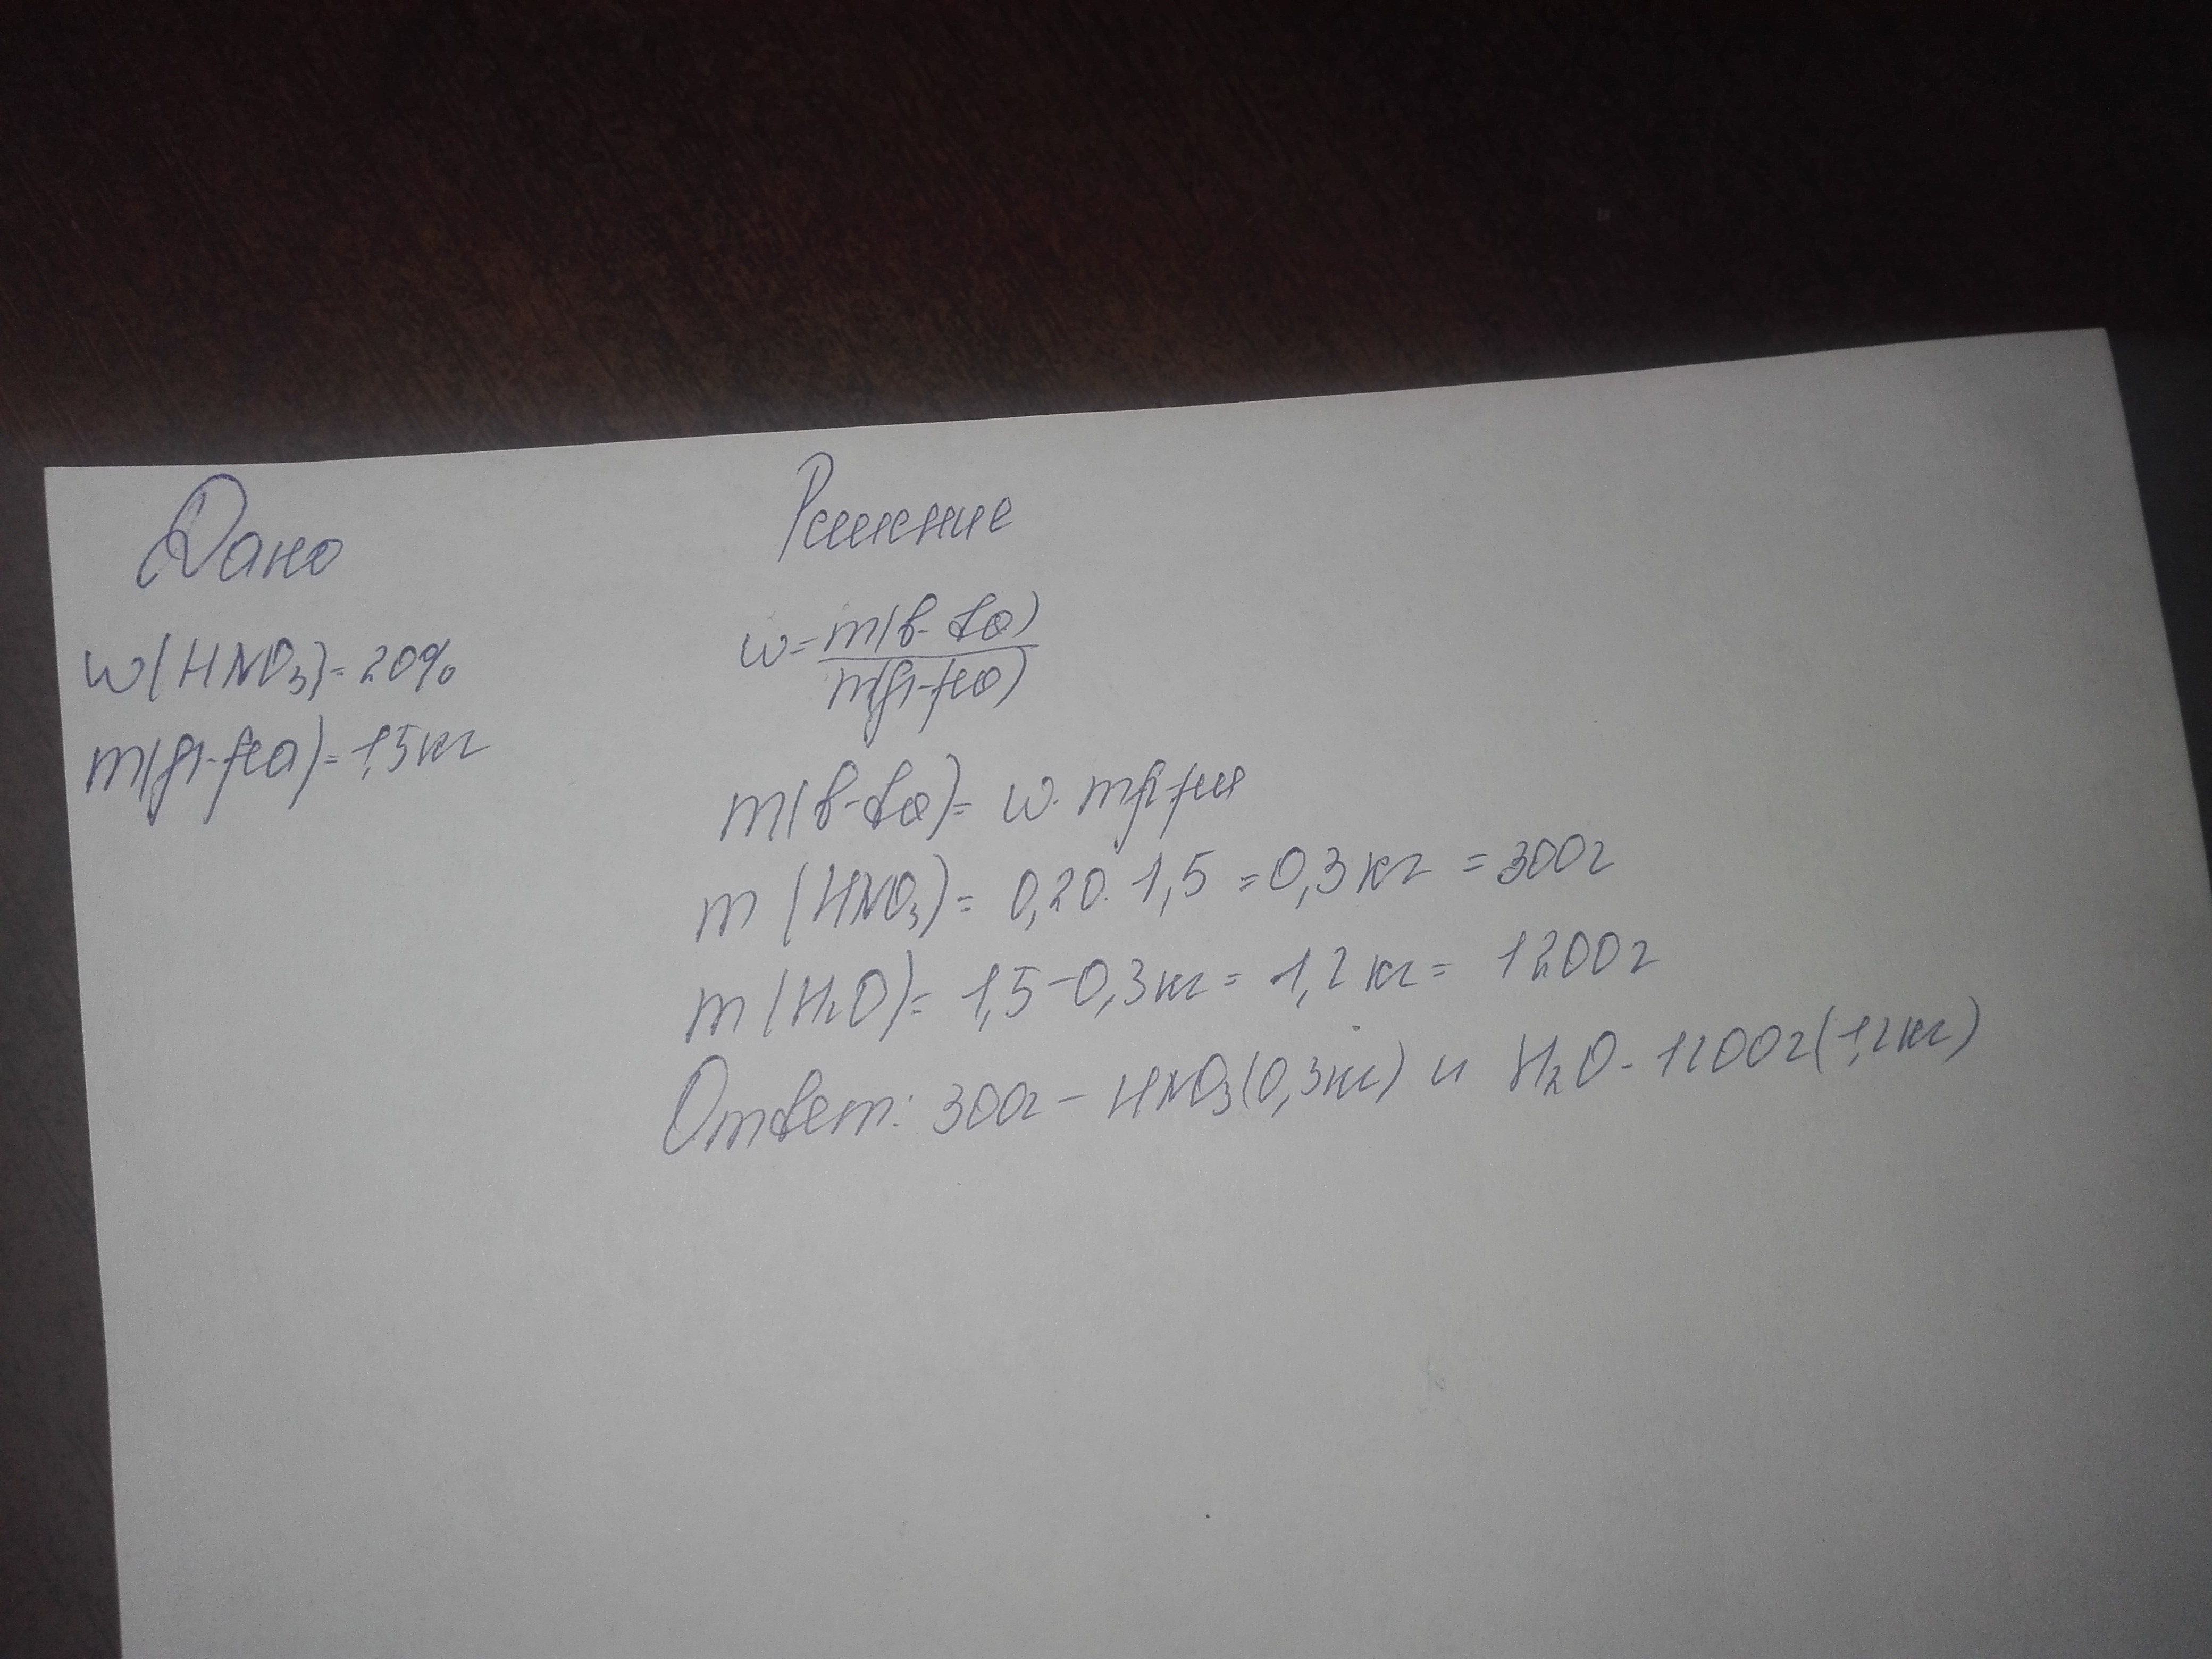 Дано
w(HNO3)=20%
m(р-ра)=1,5кг
Решение
w=m(в-ва)
m(р-ра)
m(в-ва)= w·mр-ра
m(HNO3)= 0,20·1,5=0,3кг=300г
m(H2O)= 1,5-0,3кг=1,2кг=1200г
Ответ: 300г-HNO3(0,3кг) и H2O-1200г(1,2кг)